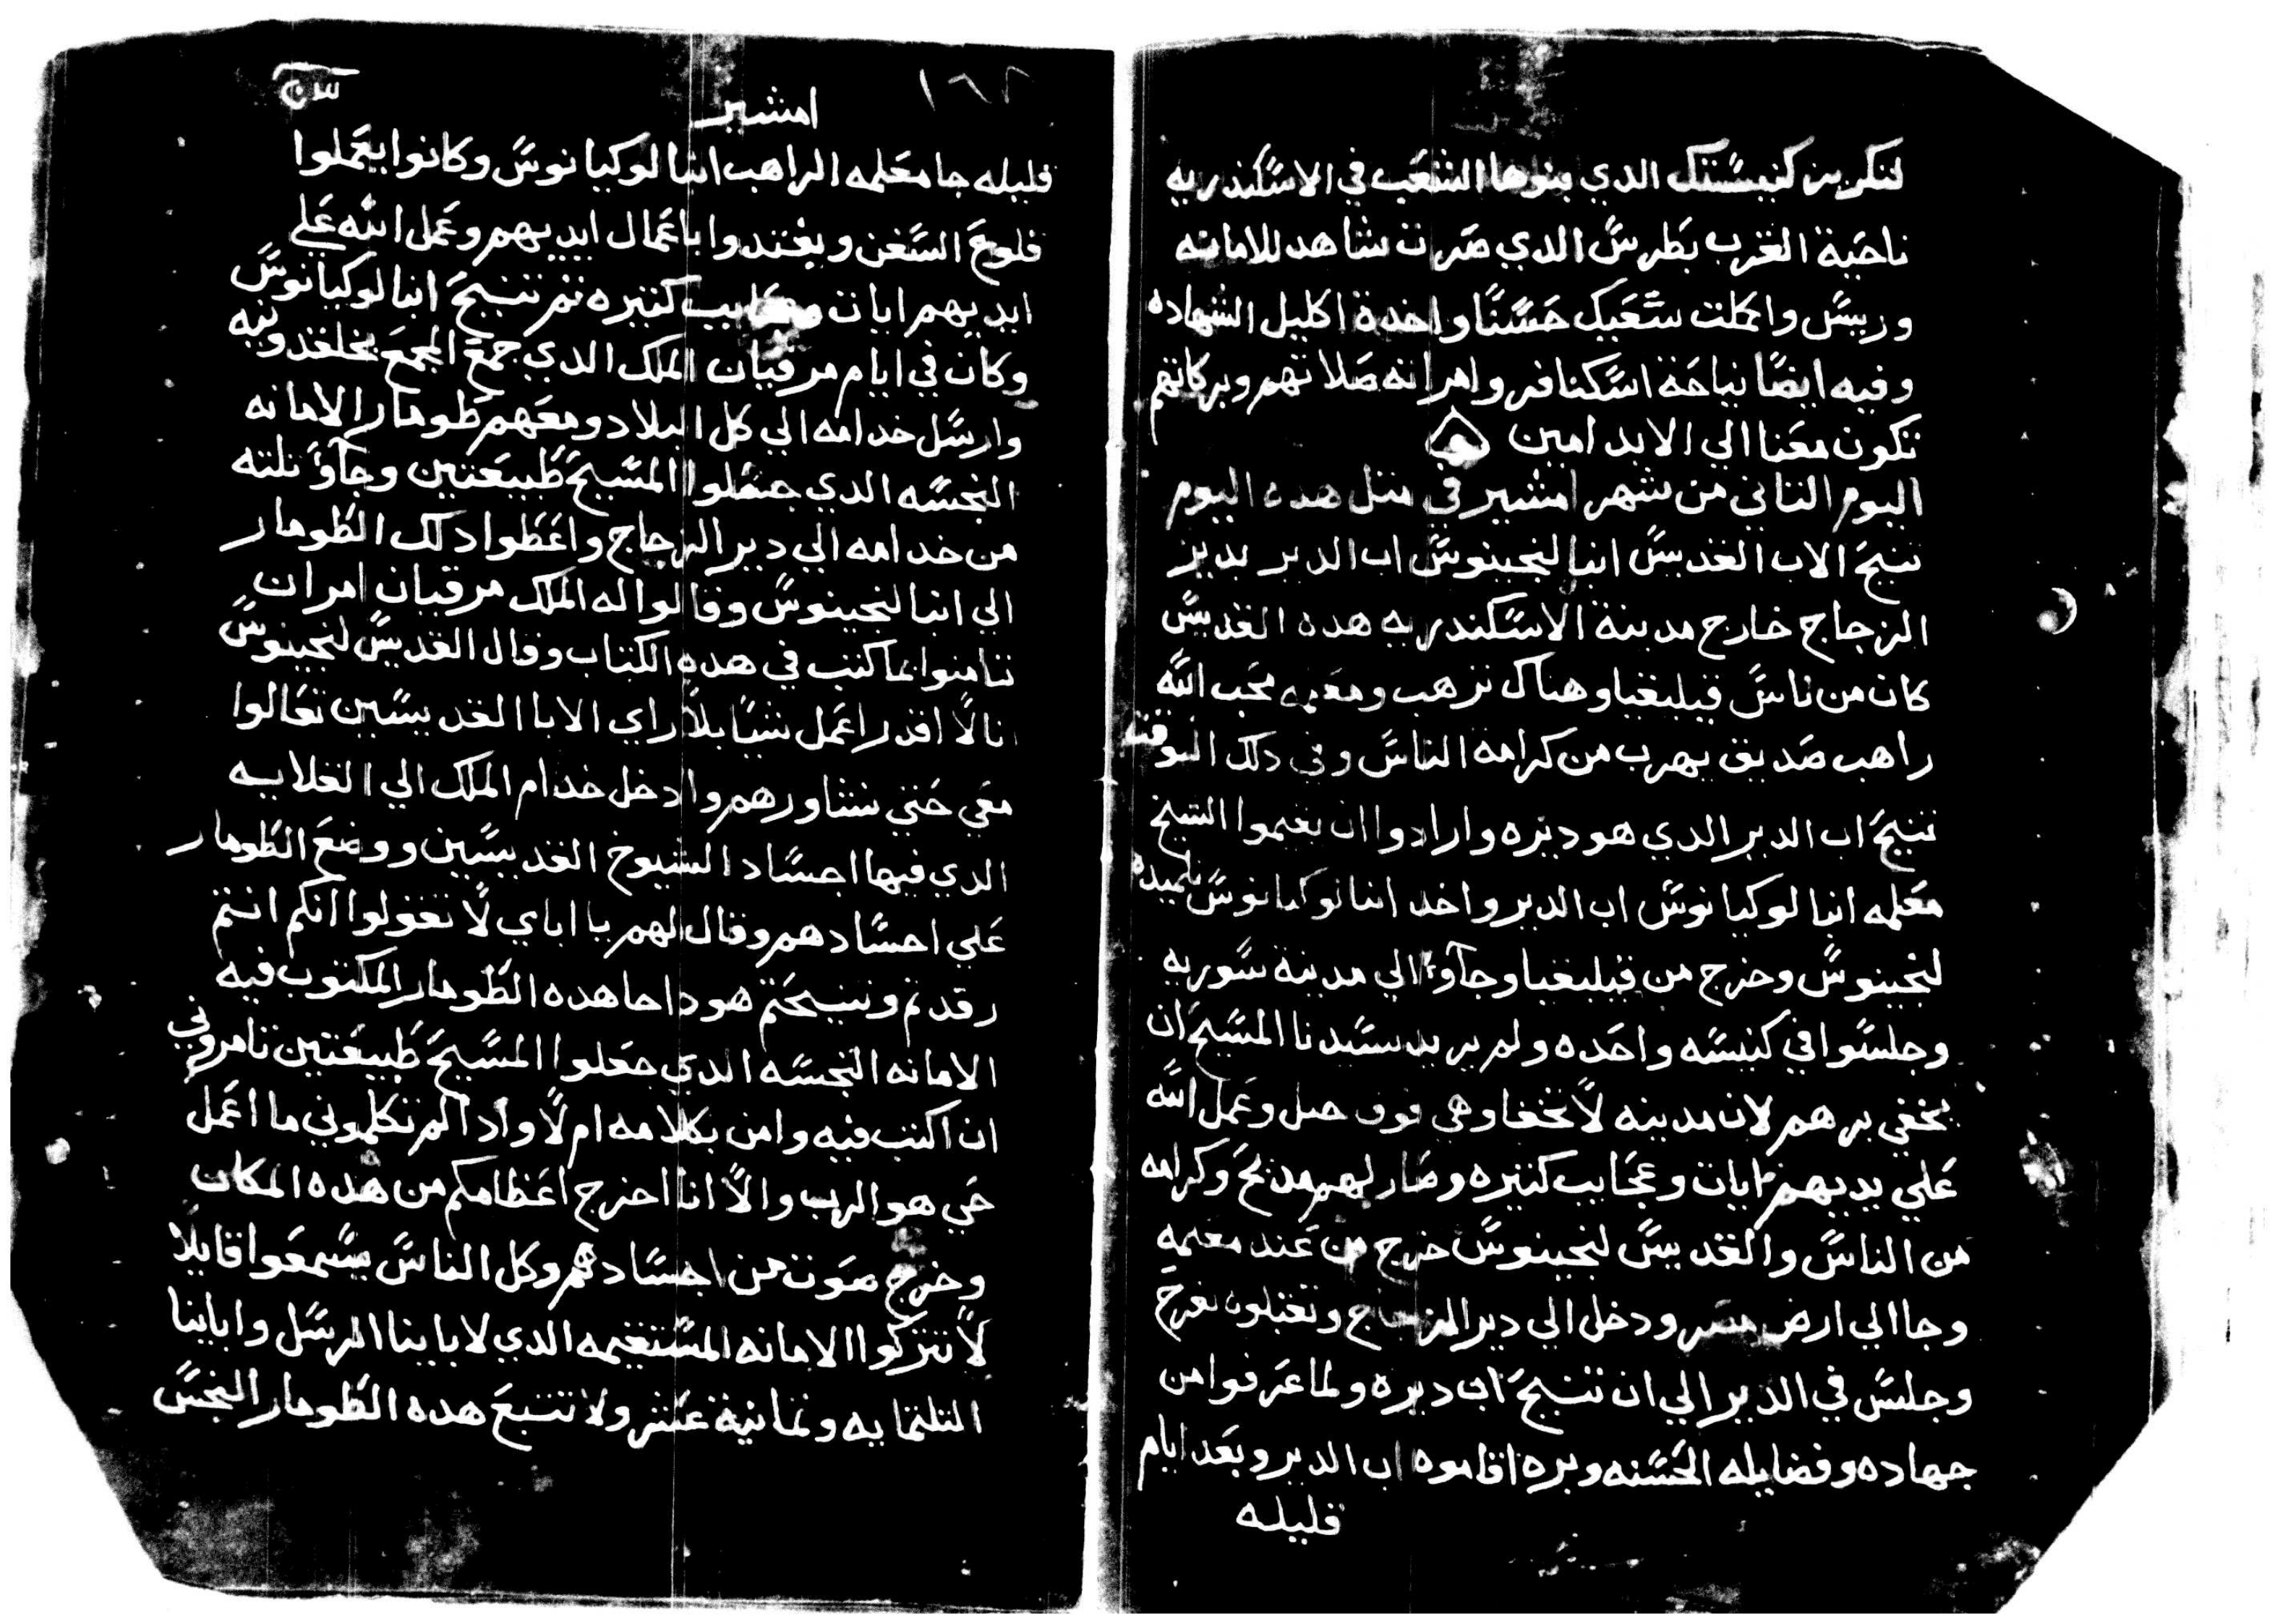 لتكريز كنيستك الدي بنوها الشعب في الاسكندريه
ناحية الغرب بطرس الدي صرت شاهد للامانه
وريس واكملت شعبك حسنا واخدة اكليل الشهاده
وفيه ايضا نياحة اسكنافر وامراته صلاتهم وبركاتهم
تكون معنا الي الابد امين
اليوم التاني من شهر امشير في متل هده اليوم
تنيح الاب القديس انبا لنجينوس اب الدير بدير
الزجاج خارج مدينة الاسكندريه هده القديس
كان من ناس قيليقيا وهناك ترهب ومعلمه محب الله
راهب صديق يهرب من كرامة الناس وفي دلك الوقت
تنيح اب الدير الدي هو ديره وارادوا ان يقيموا الشيخ
معلمه انبا لوكيانوس اب الدير واخد انبا لوكيانوس تلميده
لنجينوس وخرج من قيليقيا وجآوا الي مدينة سوريه
وجلسوا في كنيسه واحده ولم يريد سيدنا المسيح ان
يخفي برهم لان مدينه لا تخفا وهي فوق جبل وعمل الله
علي يديهم ايات وعجايب كتيره وصار لهم مديح وكرامه
من الناس والقديس لنجينوس خرج من عند معلمه
وجا الي ارض مصر ودخل الي دير الزجاج وتقبلوه بفرح
وجلس في الدير الي ان تنيح اب ديره ولما عرفوا من
جهاده وفضايله الحسنه وبره اقاموه اب الدير وبعد ايام
قليله
١٦٢
امشير
قليله جا معلمه الراهب انبا لوكيانوس وكانوا يعملوا
قلوع السفن ويقتدوا باعمال ايديهم وعمل الله علي
ايديهم ايات وعجايب كتيره تم تنيح انبا لوكيانوس
وكان في ايام مرقيان الملك الدي جمع المجمع بخلقدونيه
وارسل خدامه الي كل البلاد ومعهم طومار الامانه
النجسه الدي جعلوا المسيح طبيعتين وجآوا تلته
من خدامه الي دير الزجاج واعطوا دلك الطومار
الي انبا لنجينوس وقالوا له الملك مرقيان امر ان
تنامنوا بما كتب في هده الكتاب وقال القديس لنجينوس
انا لا اقدر اعمل شيا بلا راي الابا القديسين تعالوا
معي حتي نشاورهم وادخل خدام الملك الي القلايه
الدي فيها اجساد الشيوخ القديسين ووضع الطومار
علي اجسادهم وقال لهم يا اباي لا تقولوا انكم انتم
رقدتم وتنيحتم هودا جا هده الطومار المكتوب فيه
الامانه النجسه الدي جعلوا المسيح طبيعتين تامروني
ان اكتب فيه وامن بكلامه ام لا وادا لم تكلموني ما اعمل
حي هو الرب والا انا اخرج اعظامكم من هده المكان
وخرج صوت من اجسادهم وكل الناس يسمعوا قايلا
لا تتركوا الامانه المستقيمه الدي لاباينا الرسل واباينا
التلتمايه وتمانية عشر ولا تتبع هده الطومار النجس